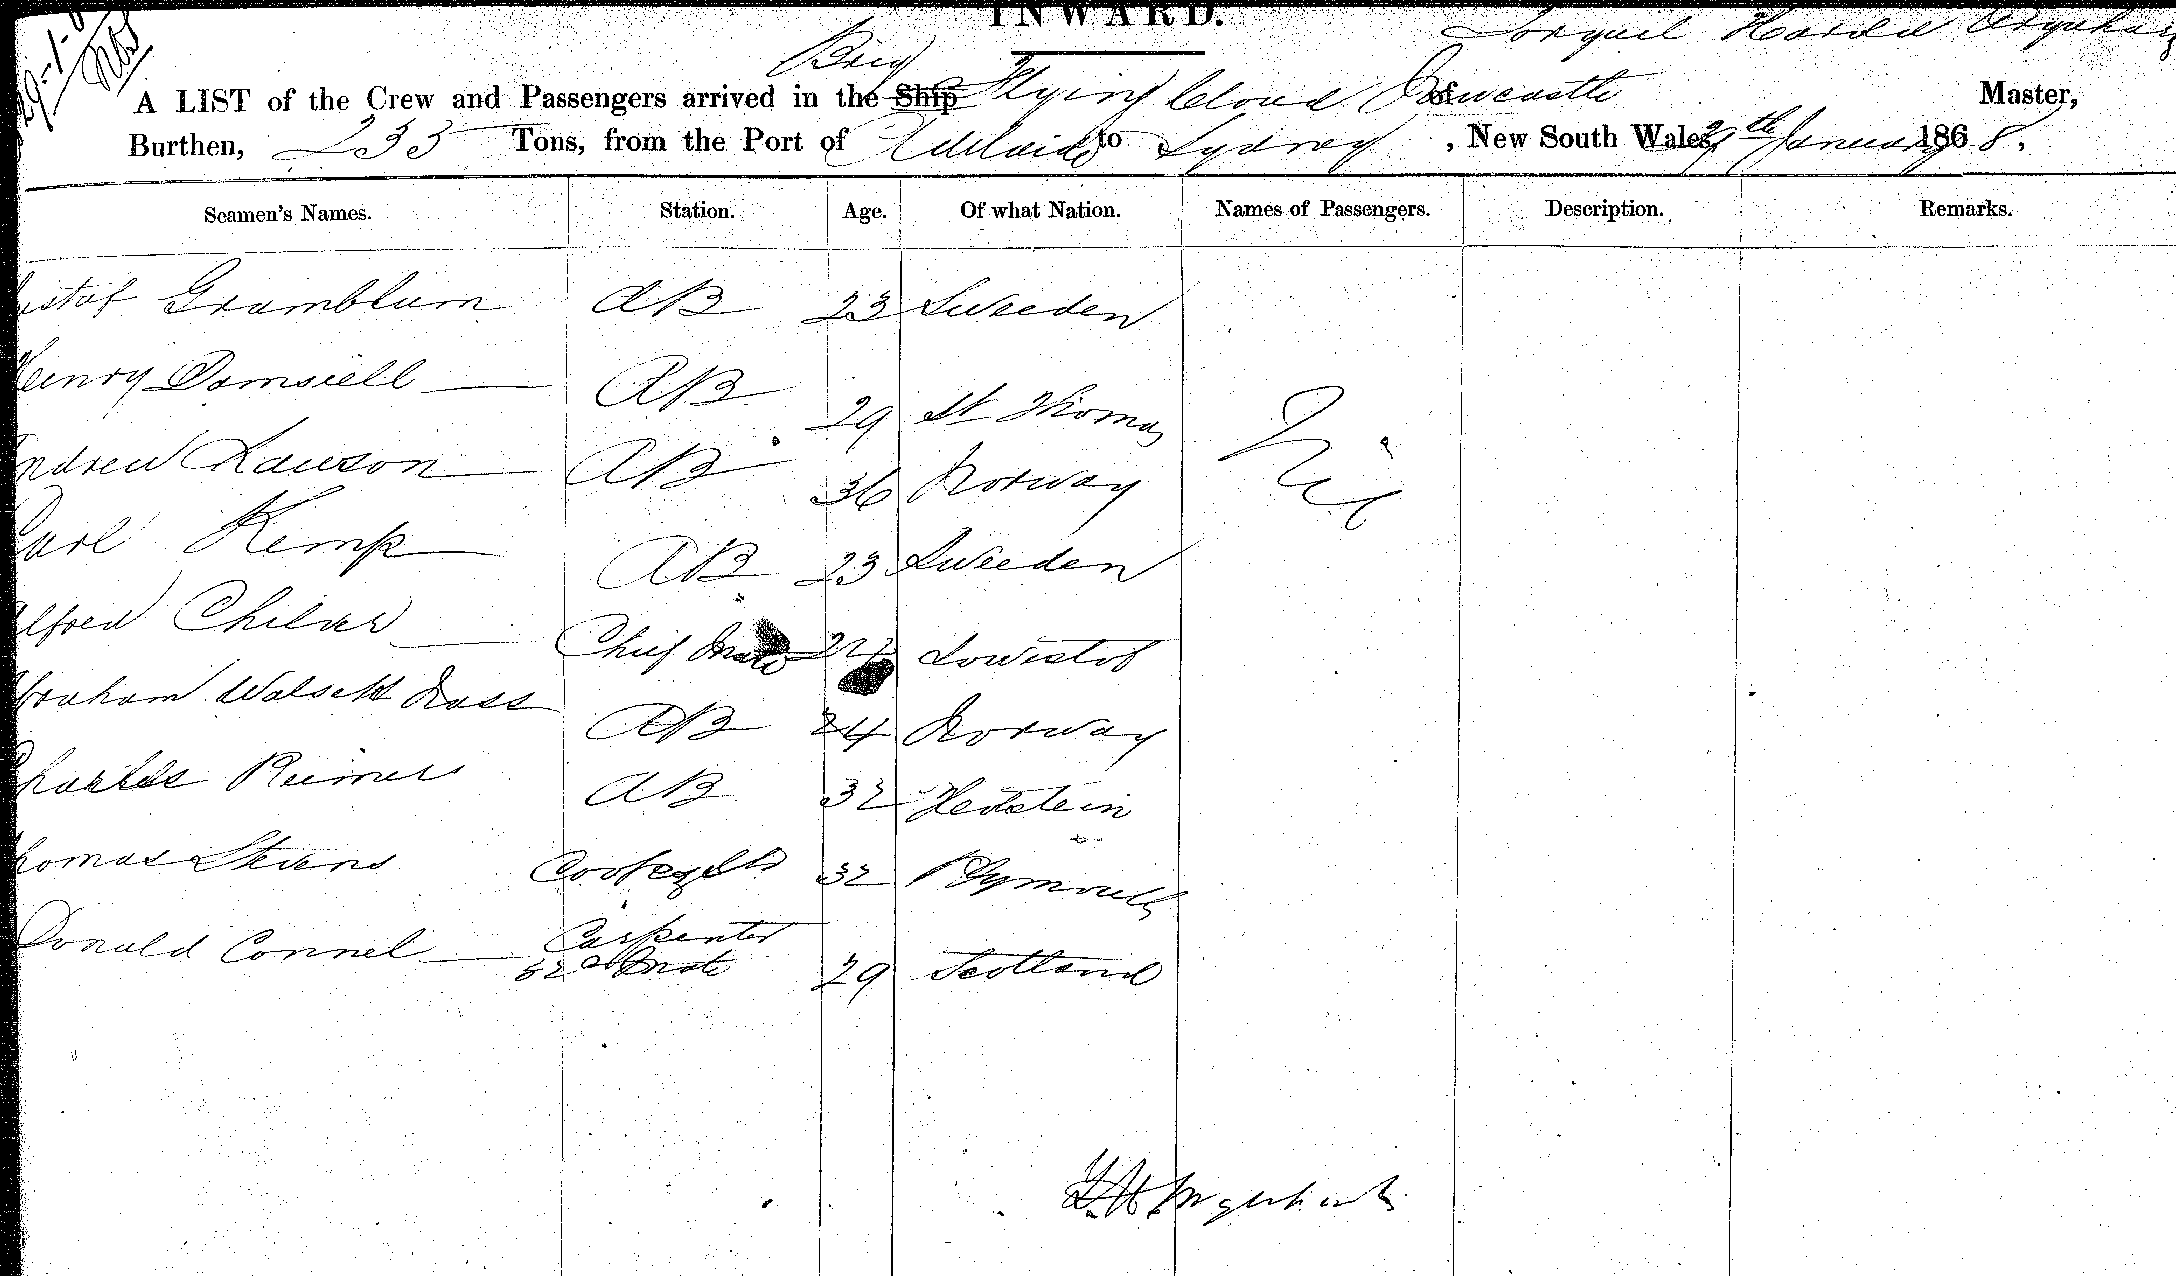 INWARD.
Torquil Urquhart
Brig
A LIST of the Crew and Passengers arrived in the Ship Flying Cloud of Newcastle Master,
Burthen, 233 Tons, from the Port of Adelaide to Sydney, New South Wales, 29th January 1868.
Seamen's Names. Station. Age. Of what Nation. Names of Passengers. Description. Remarks.
ustof Gramblum AB 23 Sweeden
Heinry Damsiell AB 29 St Thomas
Nil
Andrew Lawson AB 36 Norway
Carl Kemp AB 23 Sweeden
Alfred Chief Mate Lowistof
Abraham Ross AB 24 Norway
Charles Reimers AB 32
Thomas Stevens Cook & Std 32 Plymouth
Donald Connel Carpenter
& 2nd Mate 29 Scotland
T H Urquhart